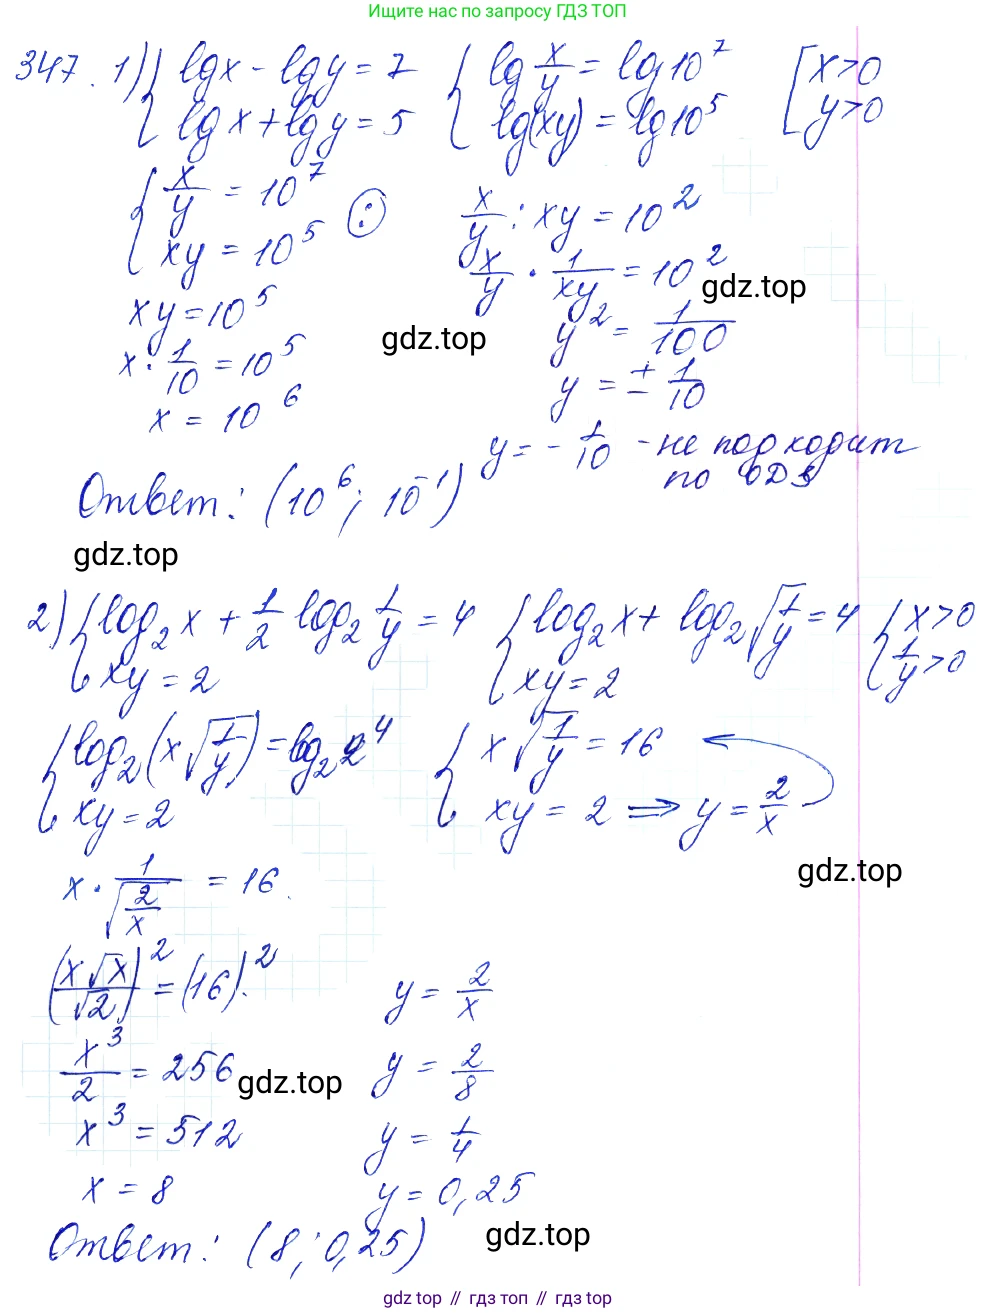 Ищите нас по запросу ГДЗ ТОП
347. 1) { lgx - lgy = 7 { lg x/y = lg10^7 [ x>0
{ lgx + lgy = 5 { lg(xy) = lg10^5 [ y>0
{ x/y = 10^7
{ xy = 10^5 (:) x/y : xy = 10^2
x/y · 1/xy = 10^2
gdz.top
xy = 10^5
gdz.top
y^2 = 1/100
x · 1/10 = 10^5
y = ± 1/10
x = 10^6
y = - 1/10 - не подходит
по ОДЗ
Ответ: (10^6; 10^-1)
gdz.top
2) { log₂x + 1/2 log₂ 1/y = 4 { log₂x + log₂√(1/y) = 4 { x>0
{ xy = 2 { xy = 2 { 1/y >0
{ log₂(x√(1/y)) = log₂2^4 { x√(1/y) = 16
{ xy = 2 { xy = 2 ⇒ y = 2/x
gdz.top
x · 1/√(2/x) = 16.
(x√x/√2)^2 = (16)^2. y = 2/x
x^3/2 = 256 y = 2/8
gdz.top
x^3 = 512 y = 1/4
x = 8 y = 0,25
Ответ: (8; 0,25)
gdz.top
gdz top // гдз топ // гдз top